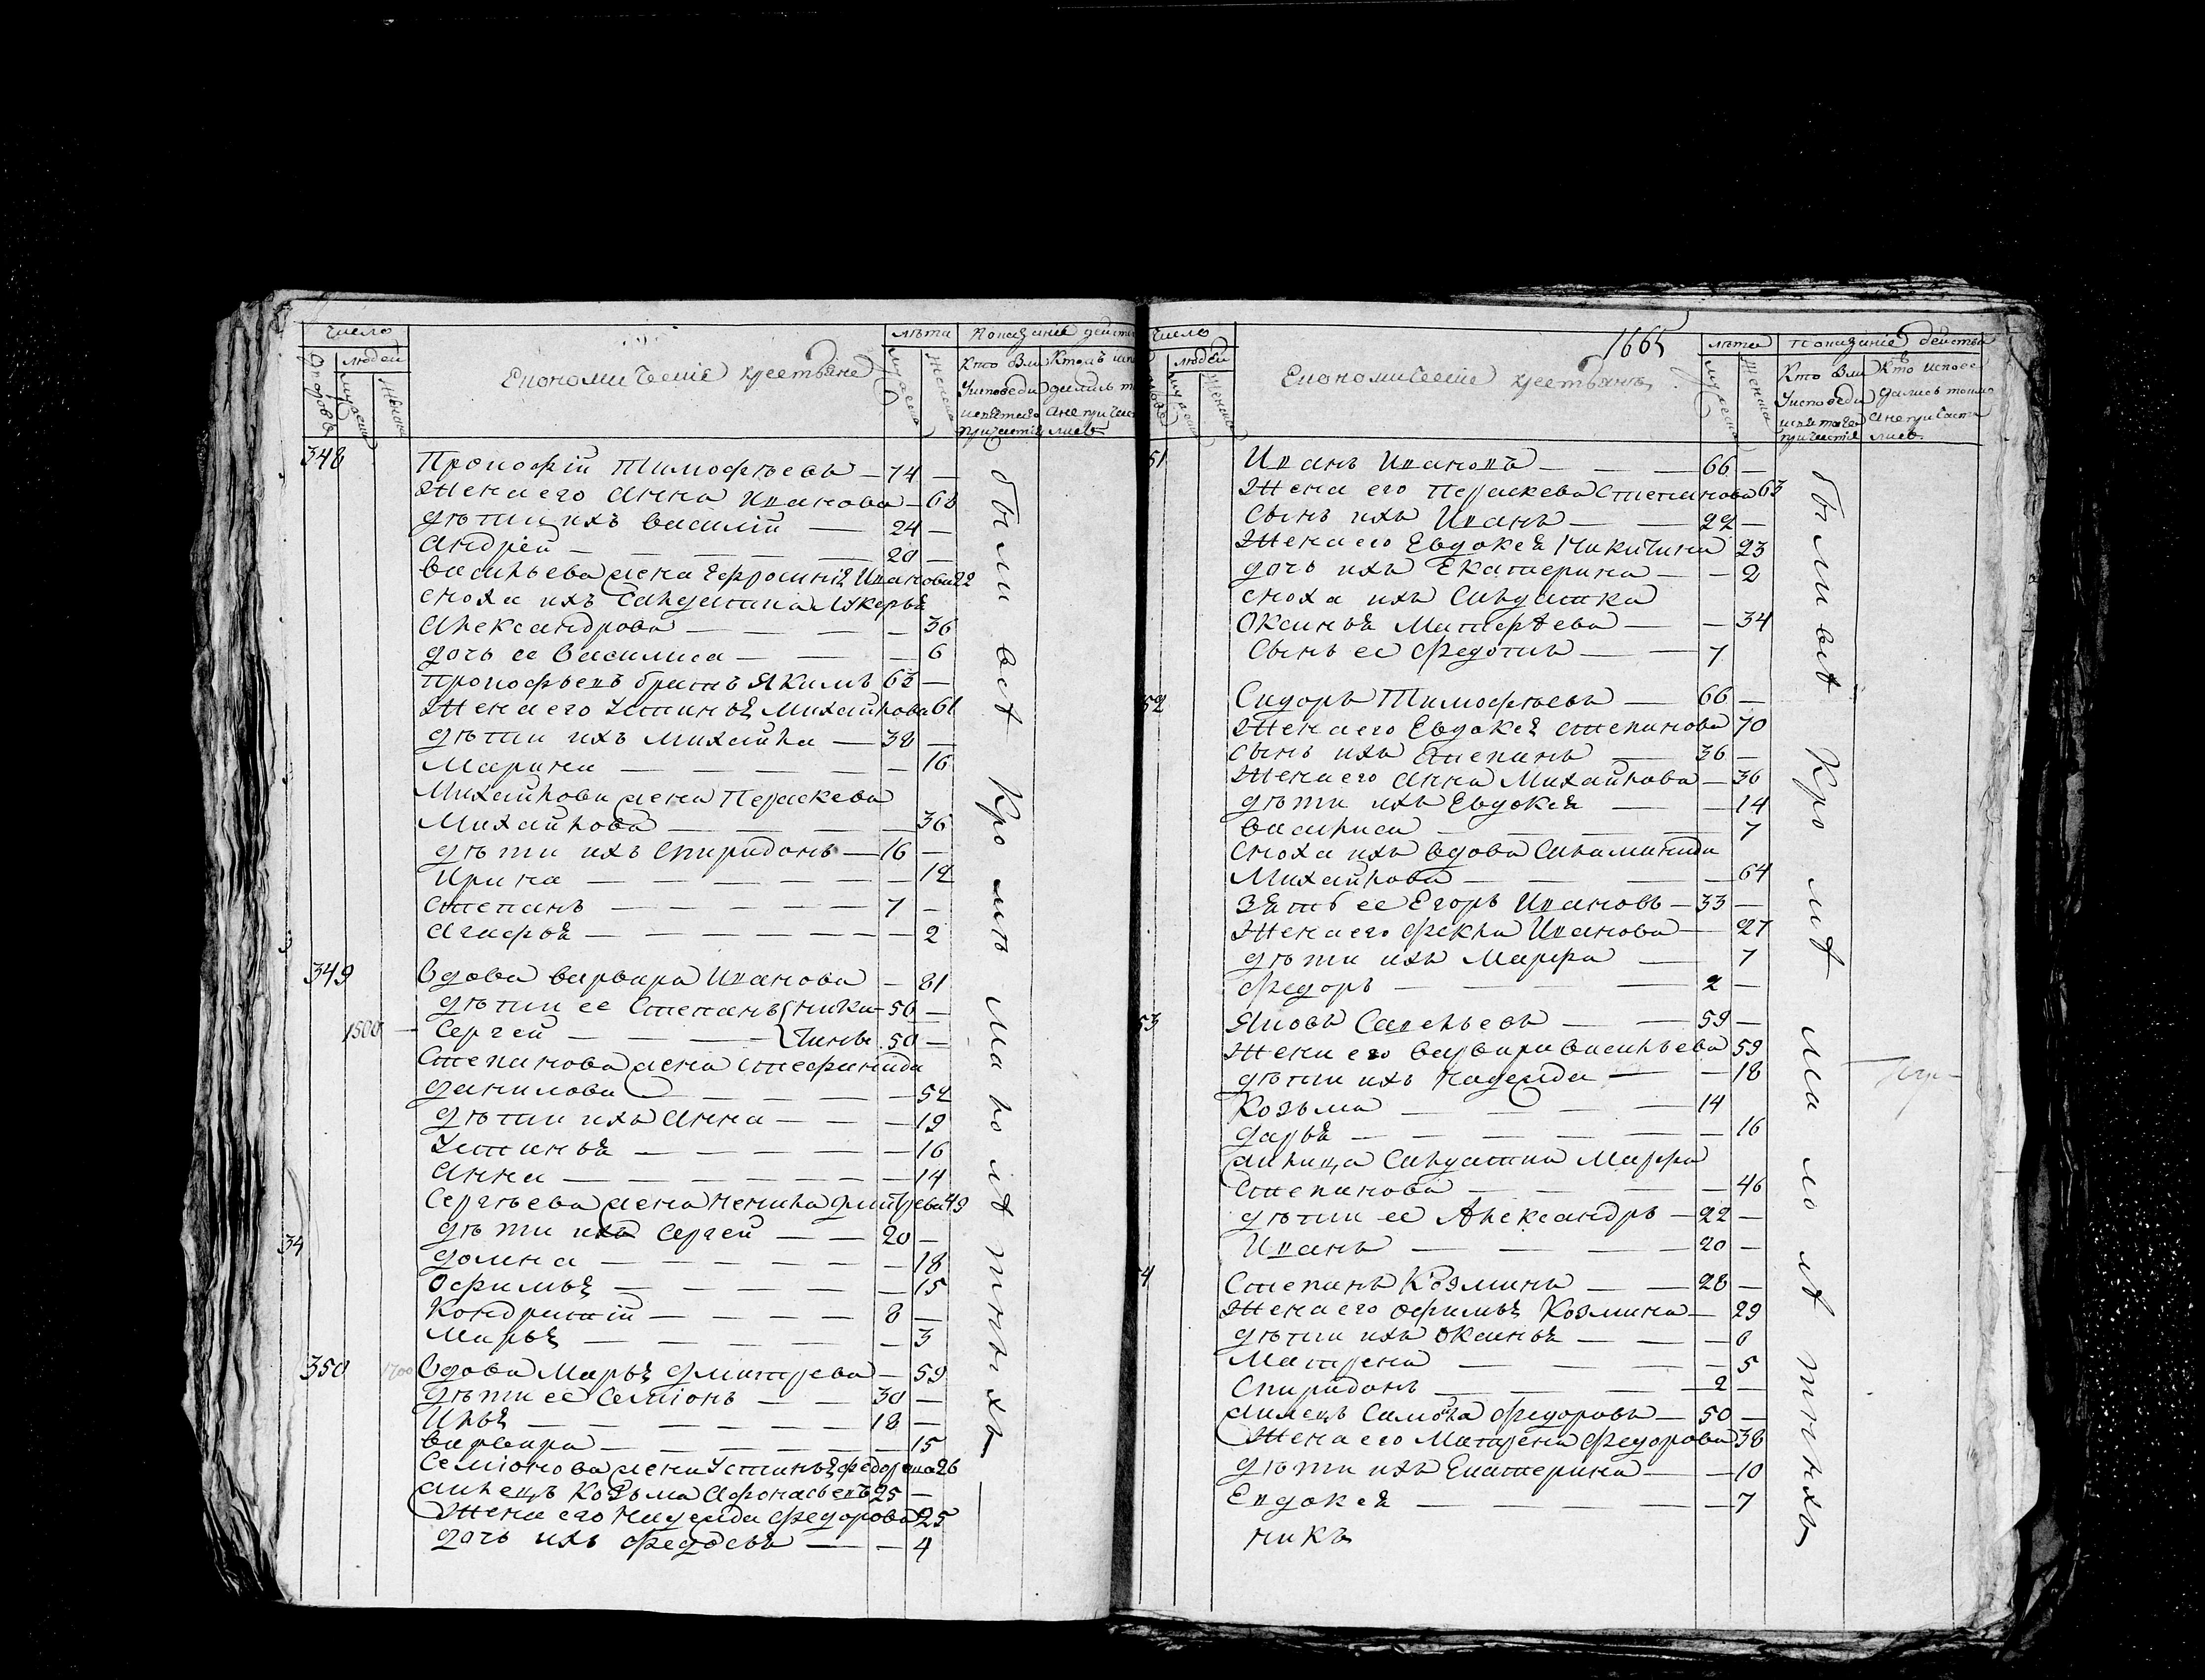 число
людей
Економическіе крестьяне
лѣта
Показаніе действ
348
Прокофій Тимофѣевъ — 74 —
Жена его Анна Иванова — 63
дѣти ихъ Василій — 24 —
Андрей — 20 —
Васильева жена Ефросинія Иванова 22
сноха ихъ Салдатка Лукерья
Александрова — 36
дочь ее Василиса — 6
Прокофьевъ братъ Якимъ 63 —
Жена его Устинья Михайлова 61
дѣти ихъ Михайла — 38 —
Марина — 16
Михайлова жена Параскева
Михайлова — 36
дѣти ихъ Спиридонъ — 16 —
Ирина — 12
Степанъ — 7 —
Агафья — 2
349
Вдова Варвара Иванова — 81
дѣти ее Степанъ — 56 —
1500 — Сергей — 50 —
Степанова жена Стефанида
Данилова — 52
дѣти ихъ Анна — 19
Устинья — 16
Анна — 14
Сергѣева жена Ненила Дмитрева 49
дѣти ихъ Сергей — 20 —
Домна — 18
Офимья — 15
Кондратій — 8 —
Марья — 3
34
350
Вдова Марья Дмитрева — 59
дѣти ее Семіонъ — 30 —
Илья — 18 —
Варвара — 15
Семіонова жена Устинья Федорова 26
Жилецъ Козьма Афонасьевъ 25 —
Жена его Надежда Федорова 25
дочь ихъ Федосья — 4
были всѣ кромѣ малолѣтныхъ
1665
число
людей
Економическіе крестьяне
лѣта
Показаніе действ
51
Иванъ Ивановъ — 66 —
Жена его Параскева Степанова 63
Сынъ ихъ Иванъ — 22 —
Жена его Евдокея Никитина 23
дочь ихъ Екатерина — 2
сноха ихъ Салдатка
Оксинья Матвеева — 34
Сынъ ее Федотъ — 7
52
Сидоръ Тимофѣевъ — 66 —
Жена его Евдокея Степанова 70
Сынъ ихъ Степанъ — 36 —
Жена его Анна Михайлова — 36
дѣти ихъ Евдокея — 14
Василиса — 7
Сноха ихъ вдова Саламанида
Михайлова — 64
Зять ее Егоръ Ивановъ — 33 —
Жена его Фекла Иванова — 27
дѣти ихъ Марфа — 7
Федоръ — 2 —
53
Яковъ Савельевъ — 59 —
Жена его Варвара Васильева 59
дѣти ихъ Надежда — 18
Козьма — 14
Дарья — 16
Жилица Салдатка Марфа
Степанова — 46
дѣти ее Александръ — 22 —
Иванъ — 20 —
4
Степанъ Козминъ — 28 —
Жена его Офимья Козмина — 29
дѣти ихъ Оксинья — 8
Матрена — 5
Спиридонъ — 2 —
Жилецъ Самойла Федоровъ — 50 —
Жена его Матрена Федорова 38
дѣти ихъ Екатерина — 10
Евдокея — 7
никъ
были всѣ кромѣ малолѣтныхъ